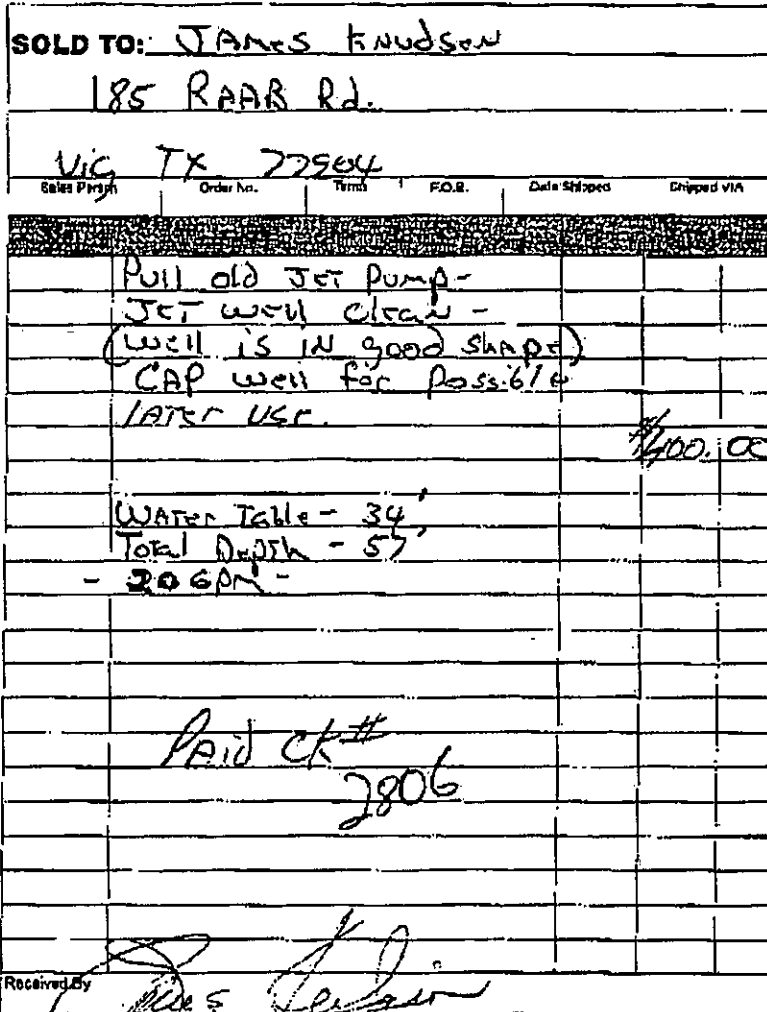 SOLD TO: JAMES KNUDSEN
185 RAAB Rd.
Vic TX 77904
Sales Person Order No. Terms F.O.B. Date Shipped Shipped VIA
Pull old JET Pump-
JET well clean -
(well is in good shape)
CAP well for Possible
later use.
00.00
WATER Table - 34'
Total Depth - 57'
- 20 GPM -
PAid CK#
2806
Received By